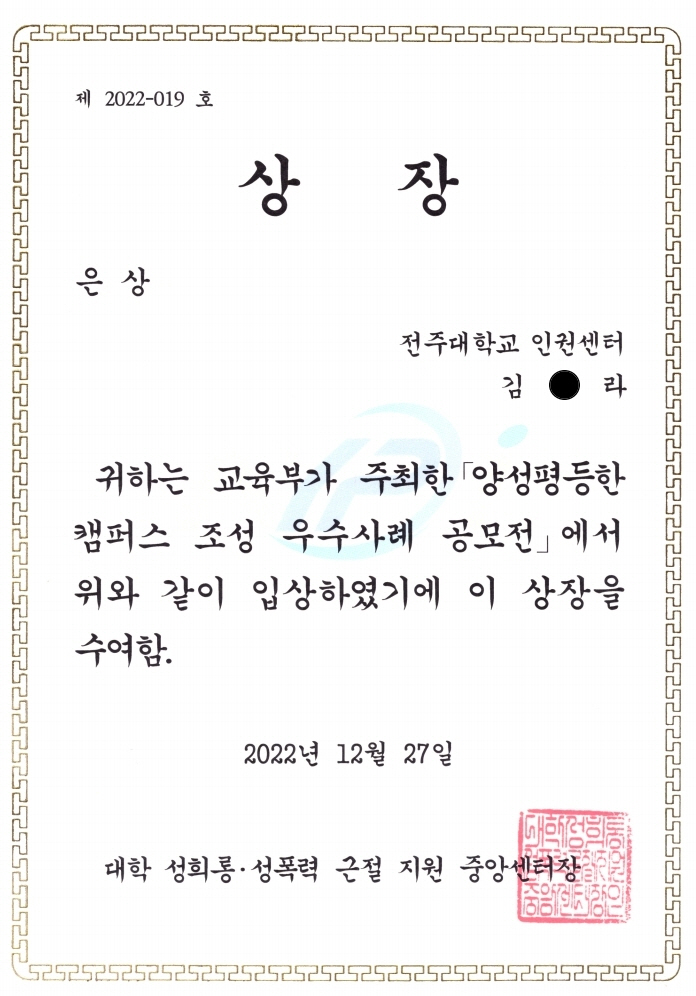 제 2022-019 호
상 장
은 상
전주대학교 인권센터
김 ● 라
귀하는 교육부가 주최한 「양성평등한
캠퍼스 조성 우수사례 공모전」에서
위와 같이 입상하였기에 이 상장을
수여함.
2022년 12월 27일
대학 성희롱·성폭력 근절 지원 중앙센터장